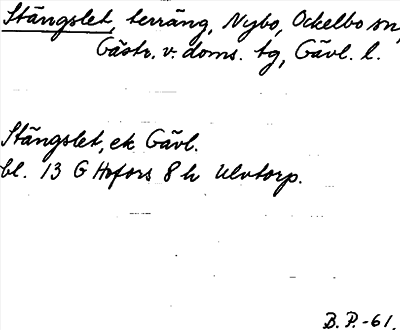 Stängslet, terräng, Nybo, Ockelbo sn,
Gästr. v. doms. tg, Gävl. l.
Stängslet, ek Gävl.
bl. 13 G Hofors 8 h Ulvtorp.
B. P. -61.